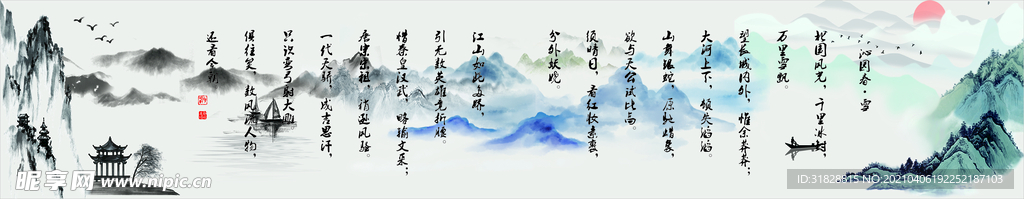 沁园春·雪
北国风光,千里冰封,
万里雪飘。
望长城内外,惟余莽莽;
大河上下,顿失滔滔。
山舞银蛇,原驰蜡象,
欲与天公试比高。
须晴日,看红妆素裹,
分外妖娆。
江山如此多娇,
引无数英雄竞折腰。
惜秦皇汉武,略输文采;
唐宗宋祖,稍逊风骚。
一代天骄,成吉思汗,
只识弯弓射大雕。
俱往矣,数风流人物,
还看今朝。
昵享网 www.nipic.cn
ID:31828815 NO:20210406192252187103